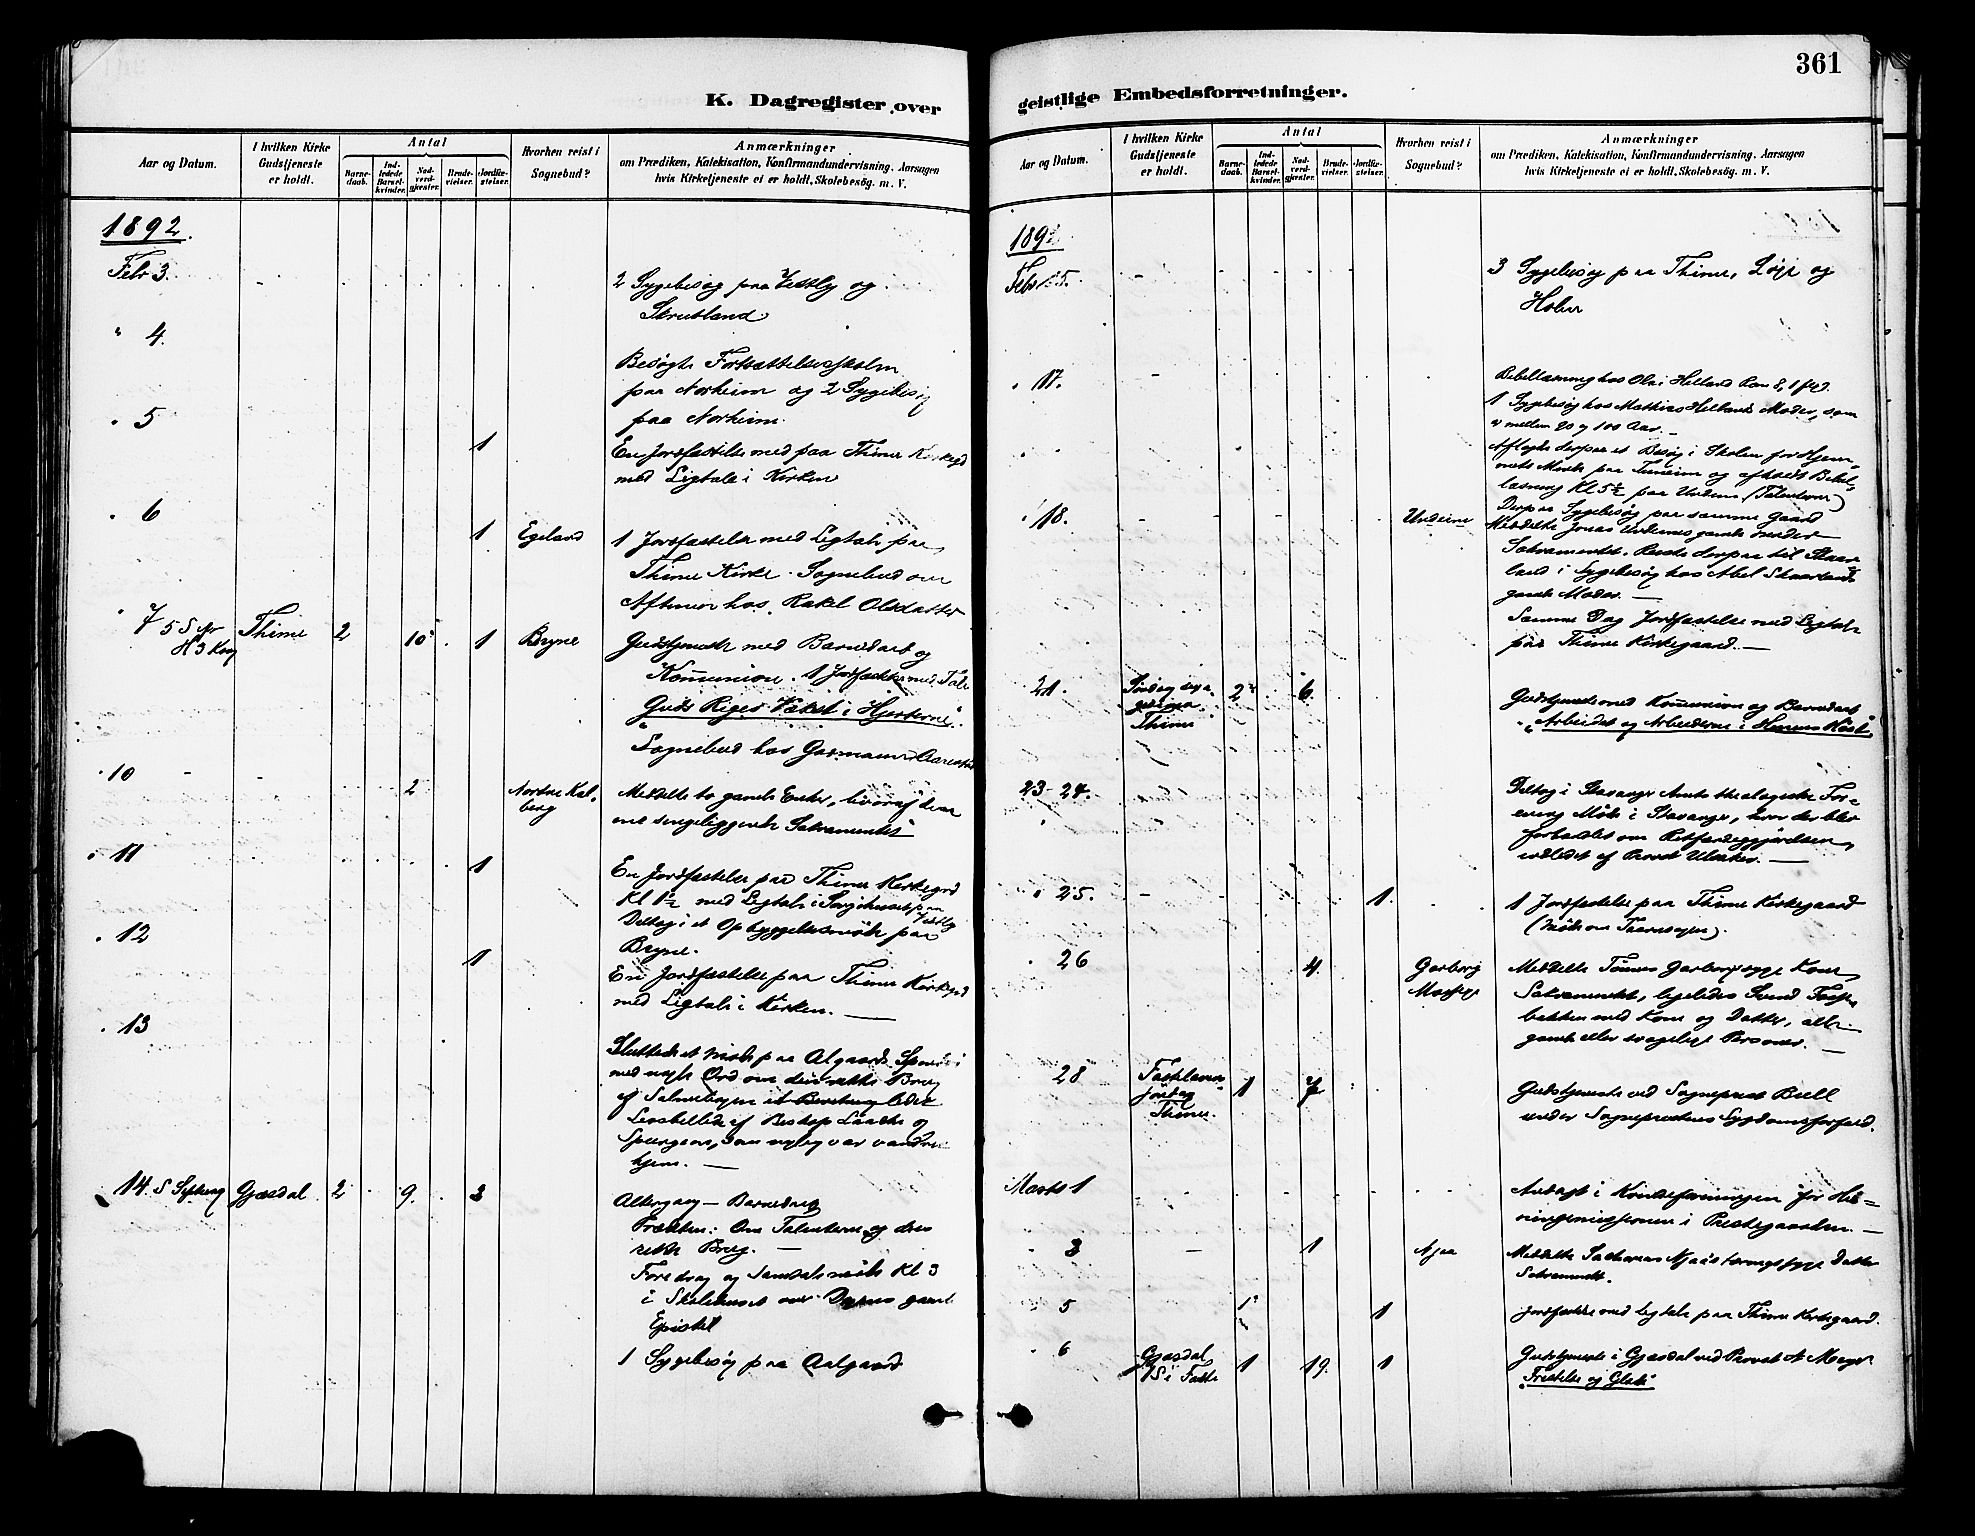 361
K. Dagregister over
geistlige Embedsforretninger.
Aar og Datum.
I hvilken Kirke Gudstjeneste er holdt.
Antal
Barnedaab.
Indledede Barselkvinder.
Nadverdgjæster.
Brudevielser.
Jordfæstelser.
Hvorhen reist i Sognebud?
Anmærkninger
om Prædiken, Katekisation, Konfirmandundervisning, Aarsagen
hvis Kirketjeneste ei er holdt, Skolebesøg. m. V.
1892.
Febr 3.
2 Sygebesøg paa Vestly og
Skrubland
" 4.
Besøgte Fortsættelsesskolen
paa Norheim og 2 Sygebesøg
paa Norheim.
" 5
1
En Jordfæstelse med paa Thime Kirkegd
med Ligtale i Kirken
" 6
1 Egeland 1 Jordfæstelse med Ligtale paa
Thime Kirke. Sognebud om
Aftenen hos Rakel Olsdatter
" 7 5 S
Thime 2 10 1 Bryne Gudstjeneste med Barnedaab og
Kommunion. 1 Jordfæstelse med Tale
"Guds Riges Vækst i Hjerterne".
Sognebud hos
" 10
2 Nordre Kalberg
Meddelte to gamle Enker, hvoraf den
ene sengeliggende Sakramentet
" 11
1
En Jordfæstelse paa Thime Kirkegrd
Kl 1½ med Ligtale i Sørgehuset paa Vestly
Deltog i et Opbyggelsesmøde paa
Bryne.
" 12
1
En Jordfæstelse paa Thime Kirkegd
med Ligtale i Kirken.
" 13
Sluttede et Møde paa Algaards
med nogle Ord om den rette Brug
af Salmebogen
Livsbillede af Biskop Laache og
Spurgeon, som nylig var vandret
hjem.
14. S Gjesdal 2 9. 3
Altergang - Barnedaab
Præken: Om Talenterne og deres
rette Brug.
Foredrag og Samtalemøde Kl 3
i Skolehuset over Dagens gamle
Epistel
1 Sygebesøg paa Aalgaard
Aar og Datum.
I hvilken Kirke Gudstjeneste er holdt.
Antal
Barnedaab.
Indledede Barselkvinder.
Nadverdgjæster.
Brudevielser.
Jordfæstelser.
Hvorhen reist i Sognebud?
Anmærkninger
om Prædiken, Katekisation, Konfirmandundervisning, Aarsagen
hvis Kirketjeneste ei er holdt, Skolebesøg. m. V.
1892
Febr 15.
3 Sygebesøg paa Thime, Løge og
Holen
" 17.
Bibellæsning hos Ole i Helland Rom 8, 1 flg.
1 Sygebesøg hos Mathias Hellands Moder, som
er mellem 90 og 100 Aar.
Aflagde derpaa et Besøg i Skolen
paa Tunheim og afholdt Bibel-
læsning Kl 5½ paa Undem (Talenterne)
Derpaa Sygebesøg paa samme Gaard
" 18.
Undeim
Meddelte Jonas Undems gamle Moder
Sakramentet. Reiste derpaa til Skaar-
land i Sygebesøg hos Abel Skaarlands
gamle Moder.
Samme Dag Jordfæstelse med Ligtale
paa Thime Kirkegaard.
21. Søndag sexagesima Thime 2 6.
Gudstjeneste med Kommunion og Barnedaab
"Arbeidet og Arbeiderne i Herrens Høst"
23-24.
Deltog i Stavanger Amts theologiske For-
enings Møde i Stavanger, hvor der blev
forhandlet om Retfærdiggjørelsen,
indledet af Provst
" 25. 1.
1 Jordfæstelse paa Thime Kirkegaard
" 26 4. Garborg
Meddelte Tønnes Garborgs syge Kone
Sakramentet, ligeledes Svend
bakken med Kone og Datter, alle
gamle eller svagelige Personer.
28 Fastelavnssøndag Thime. 1 7
Gudstjeneste ved Sogneprest Buell
under Sogneprestens Sygdomsforfald.
Marts 1
Andagt i Kvindeforeningen for Hed-
ningemissionen i Prestegaarden.
" 3 1 Njaa
Meddelte Sacharias Njaa's tæringssyge Datter
Sakramentet.
" 5 1 1
Jordfæstelse med Ligtale paa Thime Kirkegaard.
" 6 Gjesdal 1 S i Faste 1 19. 1
Gudstjeneste i Gjesdal ved Provst
"Fristelse og Glæde"